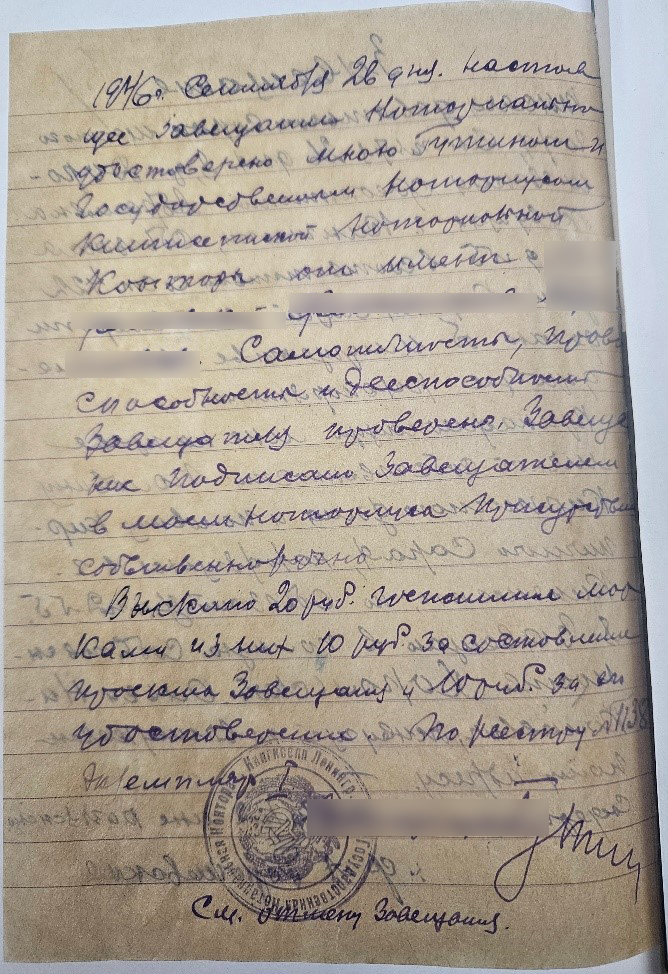 1946г. Сентября 26 дня. настоя
щее Завещание Нотариально
удостоверено мною
Государственным Нотариусом
Нотариальной
Конторы
Самоличность, право
способность и дееспособность
Завещателя проверена. Завеща
ние подписано Завещателем
в моем нотариуса присутствии
собственноручно
Взыскано 20 руб. госпошлины мар
ками из них 10 руб за составление
проекта Завещания и 10 руб. за
удостоверение По реестру № 1138
Экземпляр
Государственная Нотариальная Контора
См. отмену Завещания.